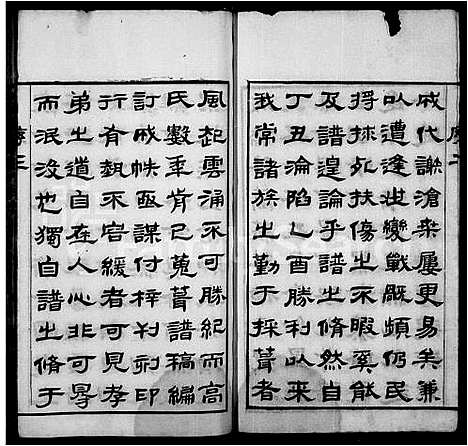 成代謝滄桑屢更易矣兼
以遭逢世變戰厮頻仍民
捋捄死扶傷之不暇奚能
及譜遑論乎譜之脩然自
丁丑淪陷乙酉勝利以來
我常諸族之勤于採葺者
風起雲涌不可勝紀而高
氏數年肯已蒐葺譜稿編
訂成帙亟謀付梓刊剞印
行有埶不容緩者可見孝
弟之道自在人心非可㝵
而泯沒也獨自譜之脩于
序二